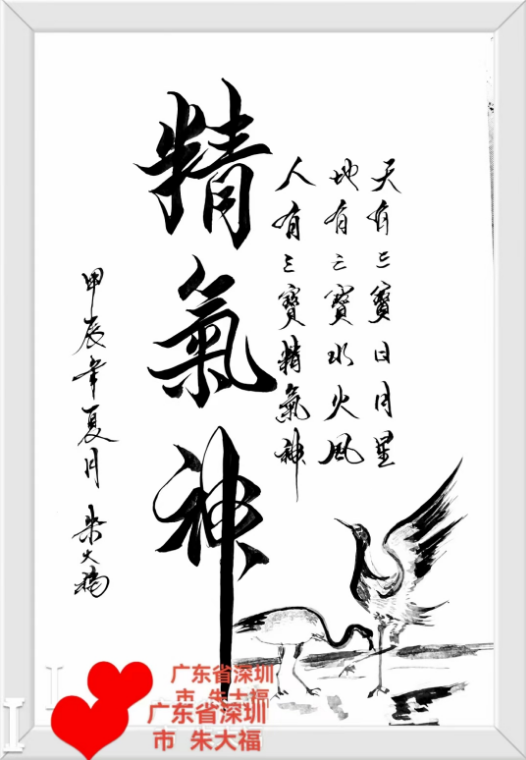 天有三寳日月星
地有三寳水火風
人有三寳精氣神
精氣神
甲辰年夏月
朱大福
广东省深圳
市 朱大福
广东省深圳
市 朱大福